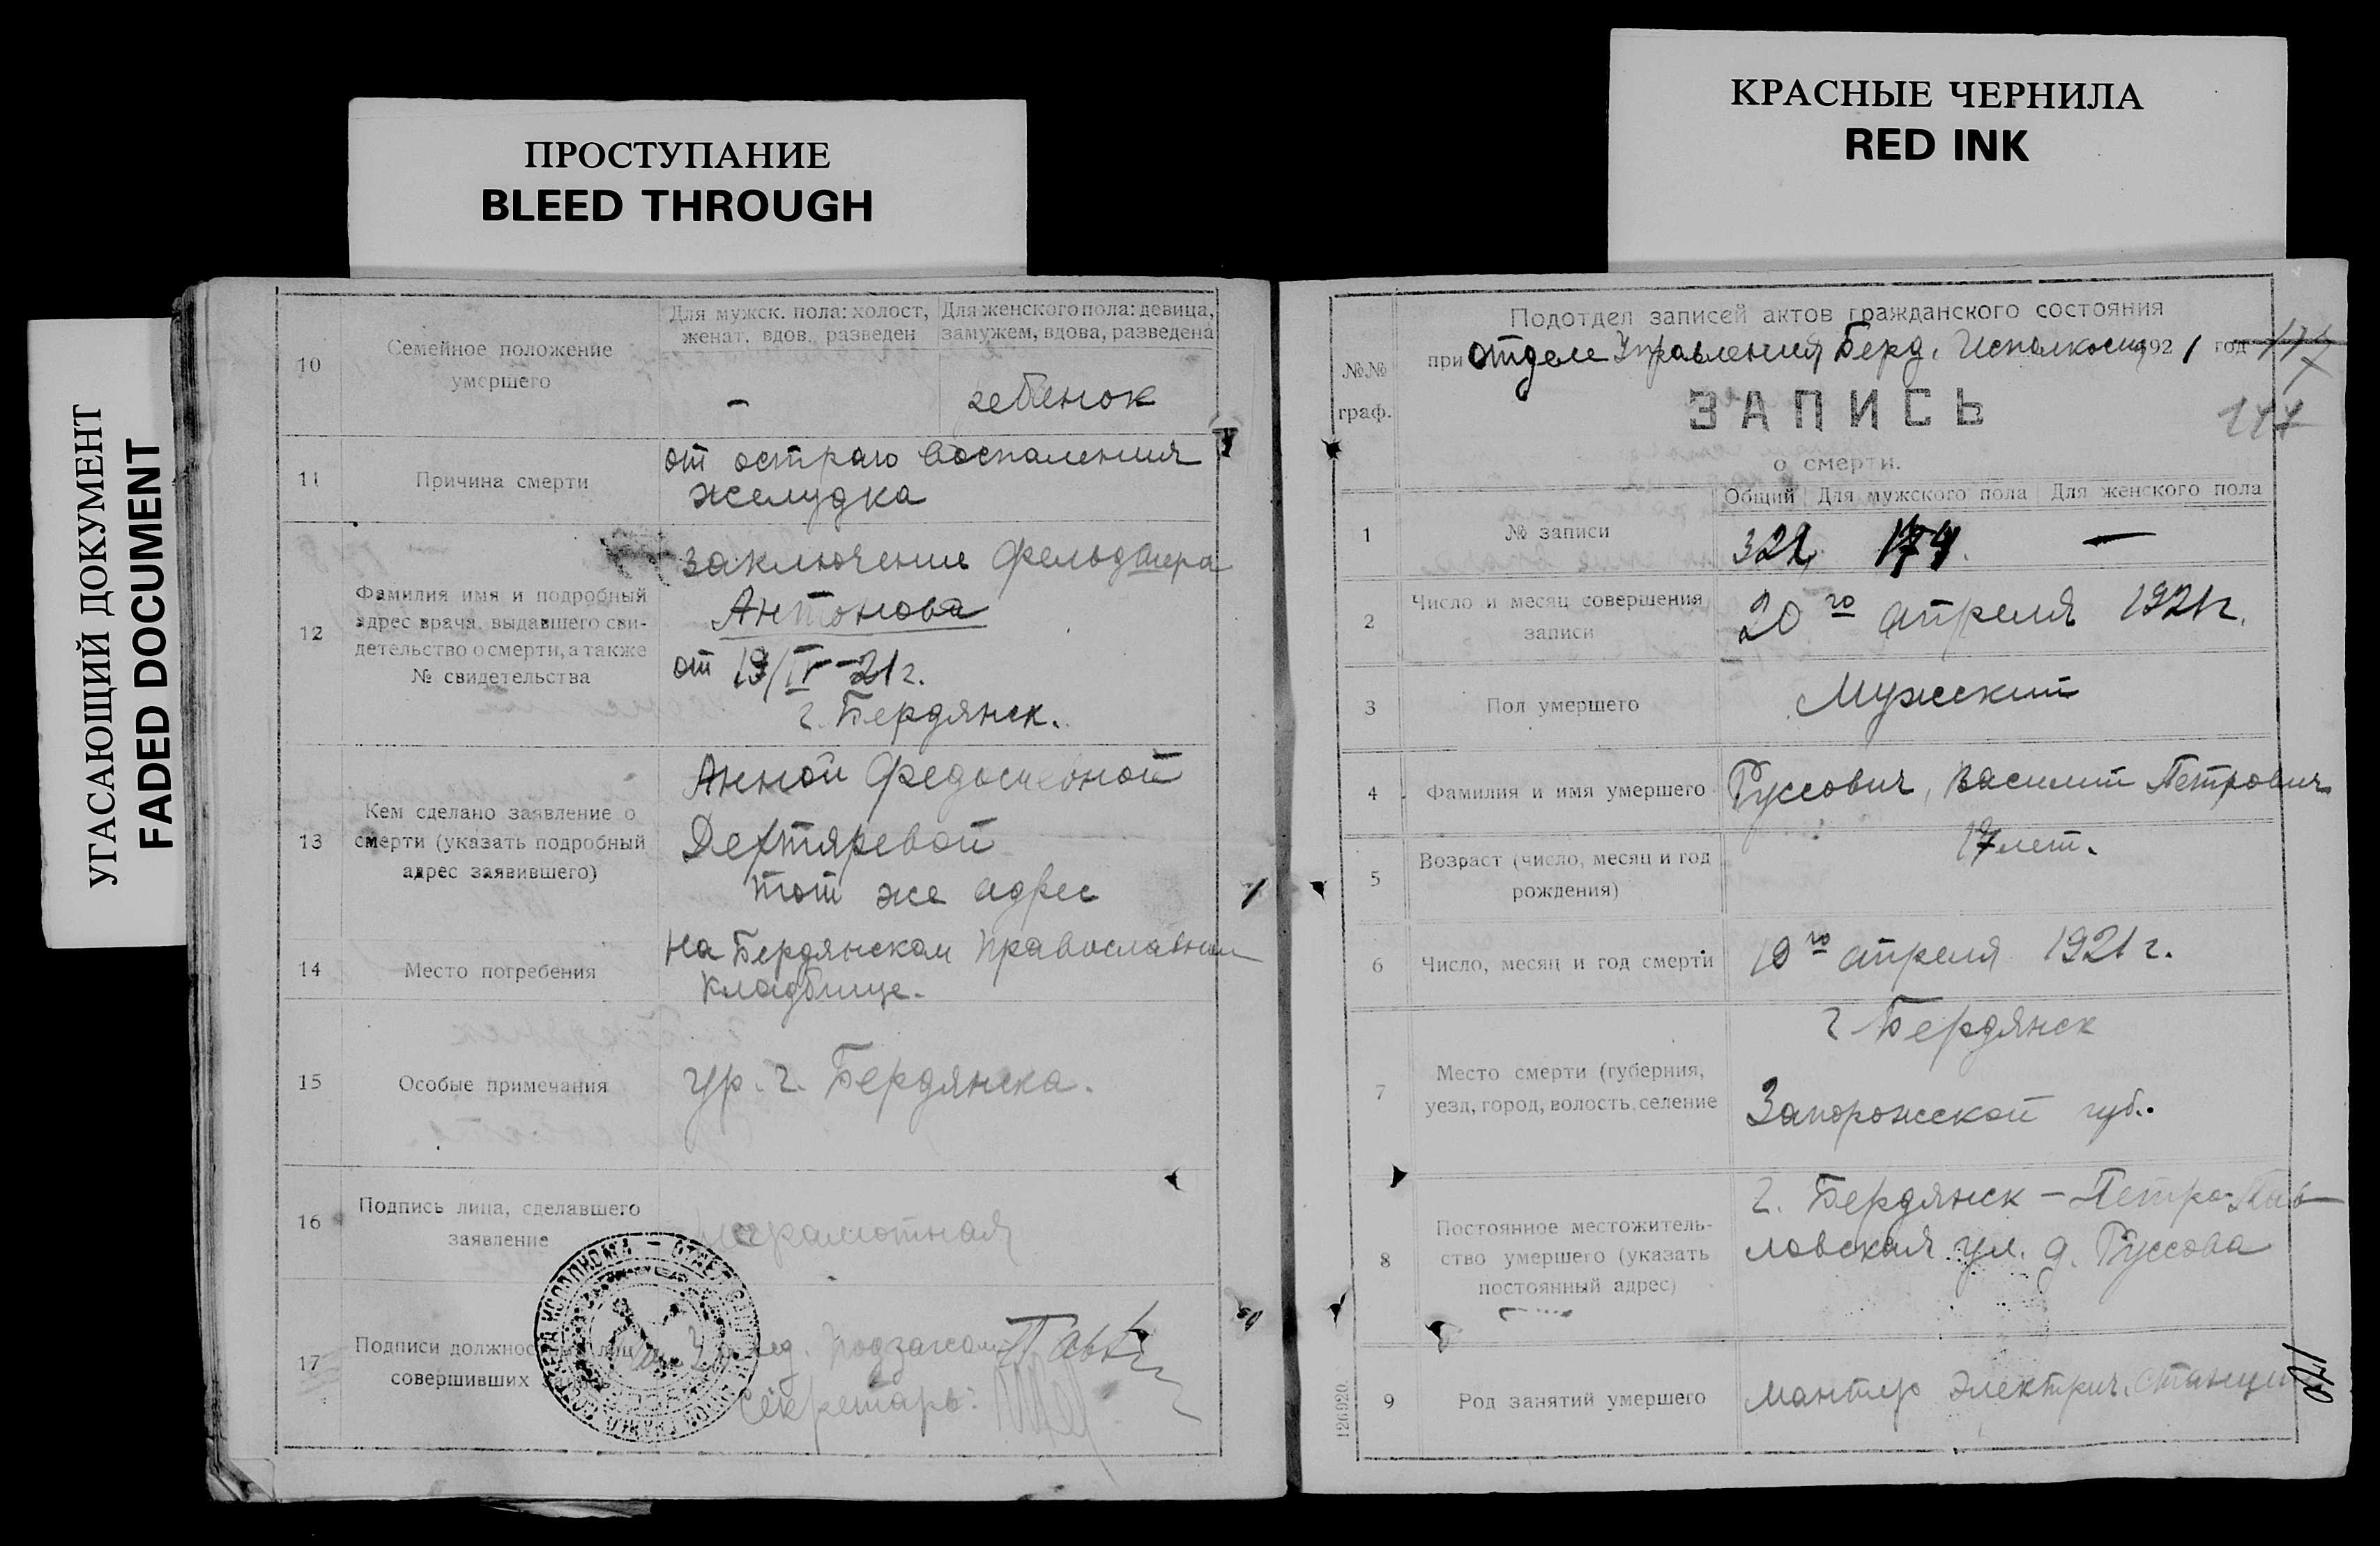 ПРОСТУПАНИЕ
BLEED THROUGH
КРАСНЫЕ ЧЕРНИЛА
RED INK
УГАСАЮЩИЙ ДОКУМЕНТ
FADED DOCUMENT
10
Семейное положение
умершего
Для мужск. пола: холост,
женат, вдов, разведен
Для женского пола: девица,
замужем, вдова, разведена
–
ребенок
11
Причина смерти
от остраго воспаления
желудка
12
Фамилия имя и подробный
адрес врача, выдавшего сви-
детельство о смерти, а также
№ свидетельства
заключение фельдшера
Антонова
от 19/IV–21 г.
г. Бердянск.
13
Кем сделано заявление о
смерти (указать подробный
адрес заявившего)
Анной Федосиевной
Дехтяревой
тот же адрес
14
Место погребения
на Бердянском православном
кладбище.
15
Особые примечания
ур. г. Бердянска.
16
Подпись лица, сделавшего
заявление
неграмотная
17
Подписи должностных лиц
совершивших
Секретарь:
№№
граф.
Подотдел записей актов гражданского состояния
при отделе Управления Берд. Исполкома 1921 год
ЗАПИСЬ
о смерти.
1
№ записи
Общий
Для мужского пола
Для женского пола
322
174.
—
2
Число и месяц совершения
записи
20го апреля 1921 г.
3
Пол умершего
Мужский
4
Фамилия и имя умершего
Руссович, Василий Петрович
5
Возраст (число, месяц и год
рождения)
17 лет.
6
Число, месяц и год смерти
19го апреля 1921 г.
7
Место смерти (губерния,
уезд, город, волость, селение
г Бердянск
Запорожской губ.
8
Постоянное местожитель-
ство умершего (указать
постоянный адрес)
г. Бердянск – Петро-Пав-
ловская ул. д. Руссова
9
Род занятий умершего
мантер электрич. станции
126920.
170